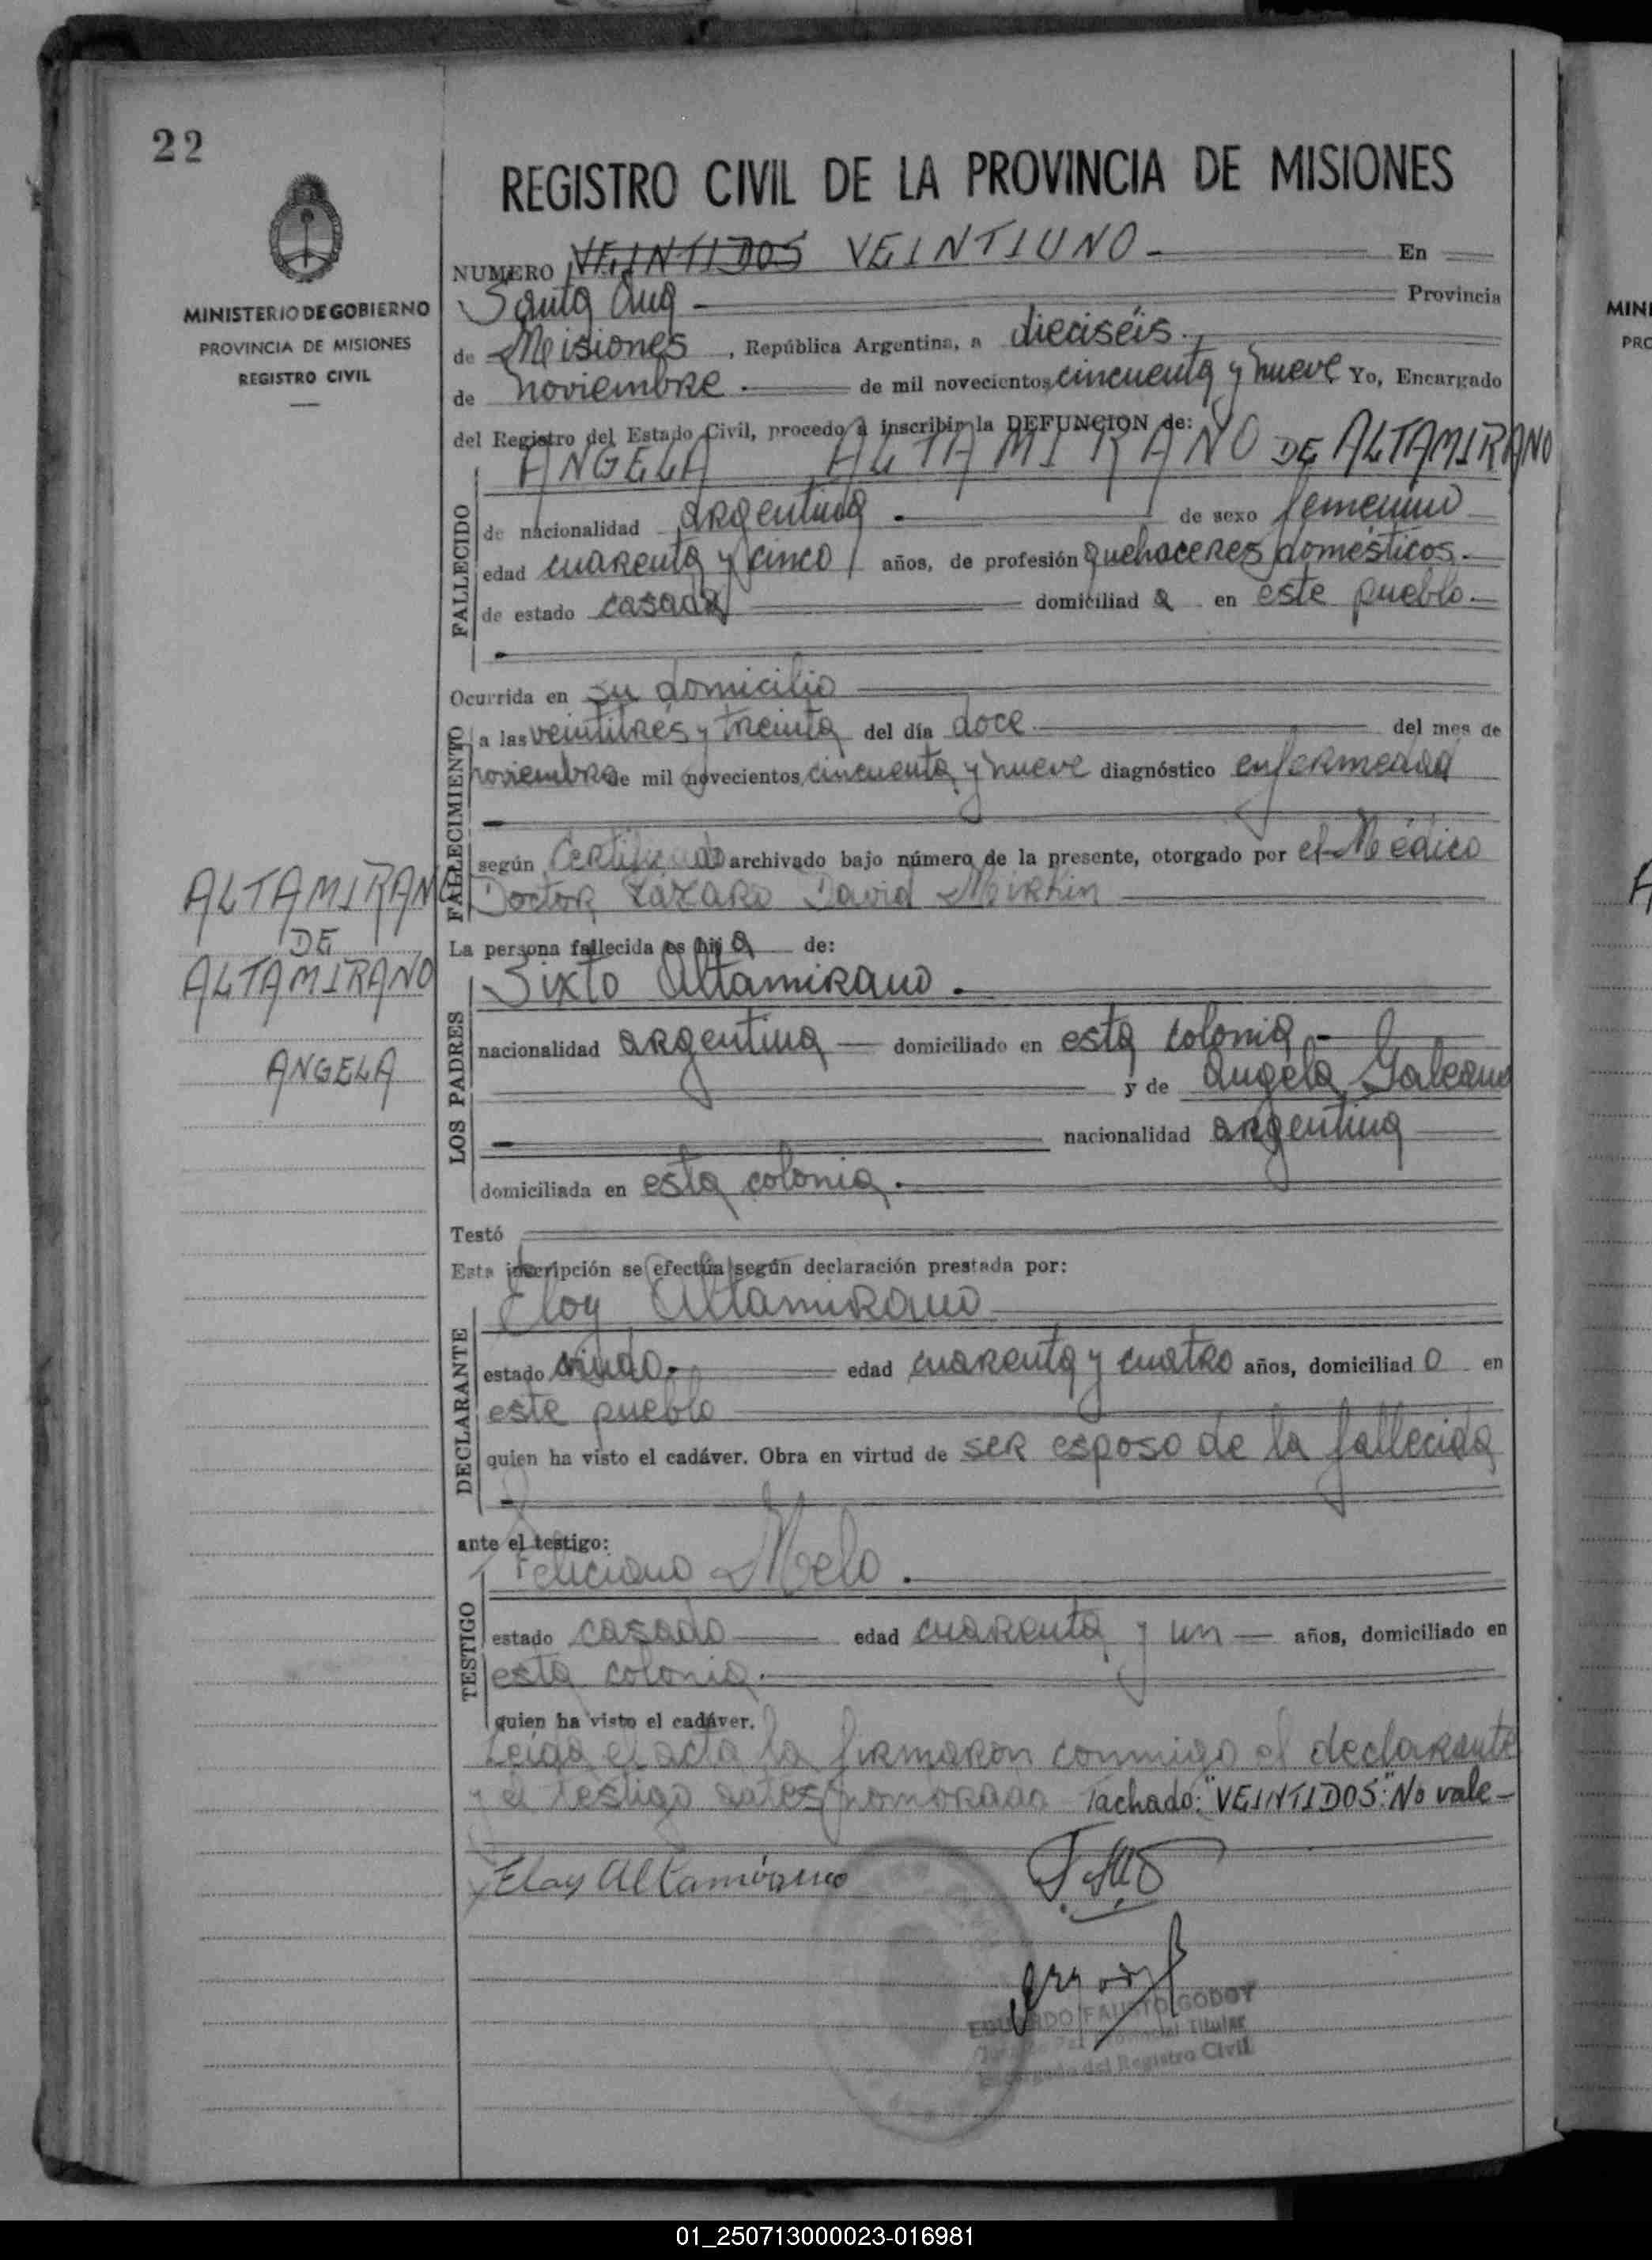 22
REGISTRO CIVIL DE LA PROVINCIA DE MISIONES
MINISTERIO DE GOBIERNO
PROVINCIA DE MISIONES
REGISTRO CIVIL
NUMERO VEINTIDOS VEINTIUNO En
Santa Ana Provincia
de Misiones, República Argentina, a dieciséis
de noviembre de mil novecientos cincuenta y nueve Yo, Encargado
del Registro del Estado Civil, procedo a inscribir la DEFUNCION de:
ANGELA ALTAMIRANO DE ALTAMIRANO
FALLECIDO
de nacionalidad argentina de sexo femenino
edad cuarenta y cinco años, de profesión quehaceres domésticos.
de estado casada domiciliad a en este pueblo.
Ocurrida en su domicilio
FALLECIMIENTO
a las veintitrés y treinta del día doce del mes de
noviembre de mil novecientos cincuenta y nueve diagnóstico enfermedad
según Certificado archivado bajo número de la presente, otorgado por el Médico
Doctor Lázaro David Mirkin
ALTAMIRANO
DE
ALTAMIRANO
ANGELA
La persona fallecida es hij a de:
LOS PADRES
Sixto Altamirano.
nacionalidad argentina domiciliado en esta colonia
y de Angela Galeano
nacionalidad argentina
domiciliada en esta colonia.
Testó
Esta inscripción se efectúa según declaración prestada por:
DECLARANTE
Eloy Altamirano
estado viudo. edad cuarenta y cuatro años, domiciliad o en
este pueblo
quien ha visto el cadáver. Obra en virtud de ser esposo de la fallecida
ante el testigo:
TESTIGO
Feliciano Melo.
estado casado edad cuarenta y un años, domiciliado en
esta colonia.
quien ha visto el cadáver.
Leída el acta la firmaron conmigo el declarante
y el testigo antes nombrado Tachado: "VEINTIDOS": No vale
Eloy Altamirano
EDUARDO FAUSTO GODOY
Titular
Encargado del Registro Civil
MINI
PRO
A
01_250713000023-016981